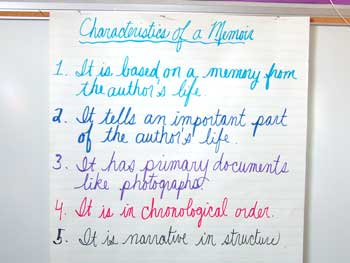 Characteristics of a Memoir
1. It is based on a memory from
the author's life.
2. It tells an important part
of the author's life.
3. It has primary documents
like photographs.
4. It is in chronological order.
5. It is narrative in structure